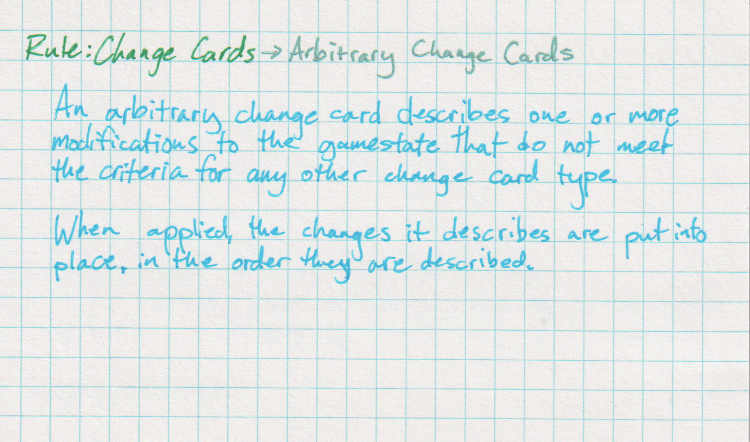 Rule: Change Cards → Arbitrary Change Cards
An arbitrary change card describes one or more
modifications to the gamestate that do not meet
the criteria for any other change card type.
When applied, the changes it describes are put into
place, in the order they are described.